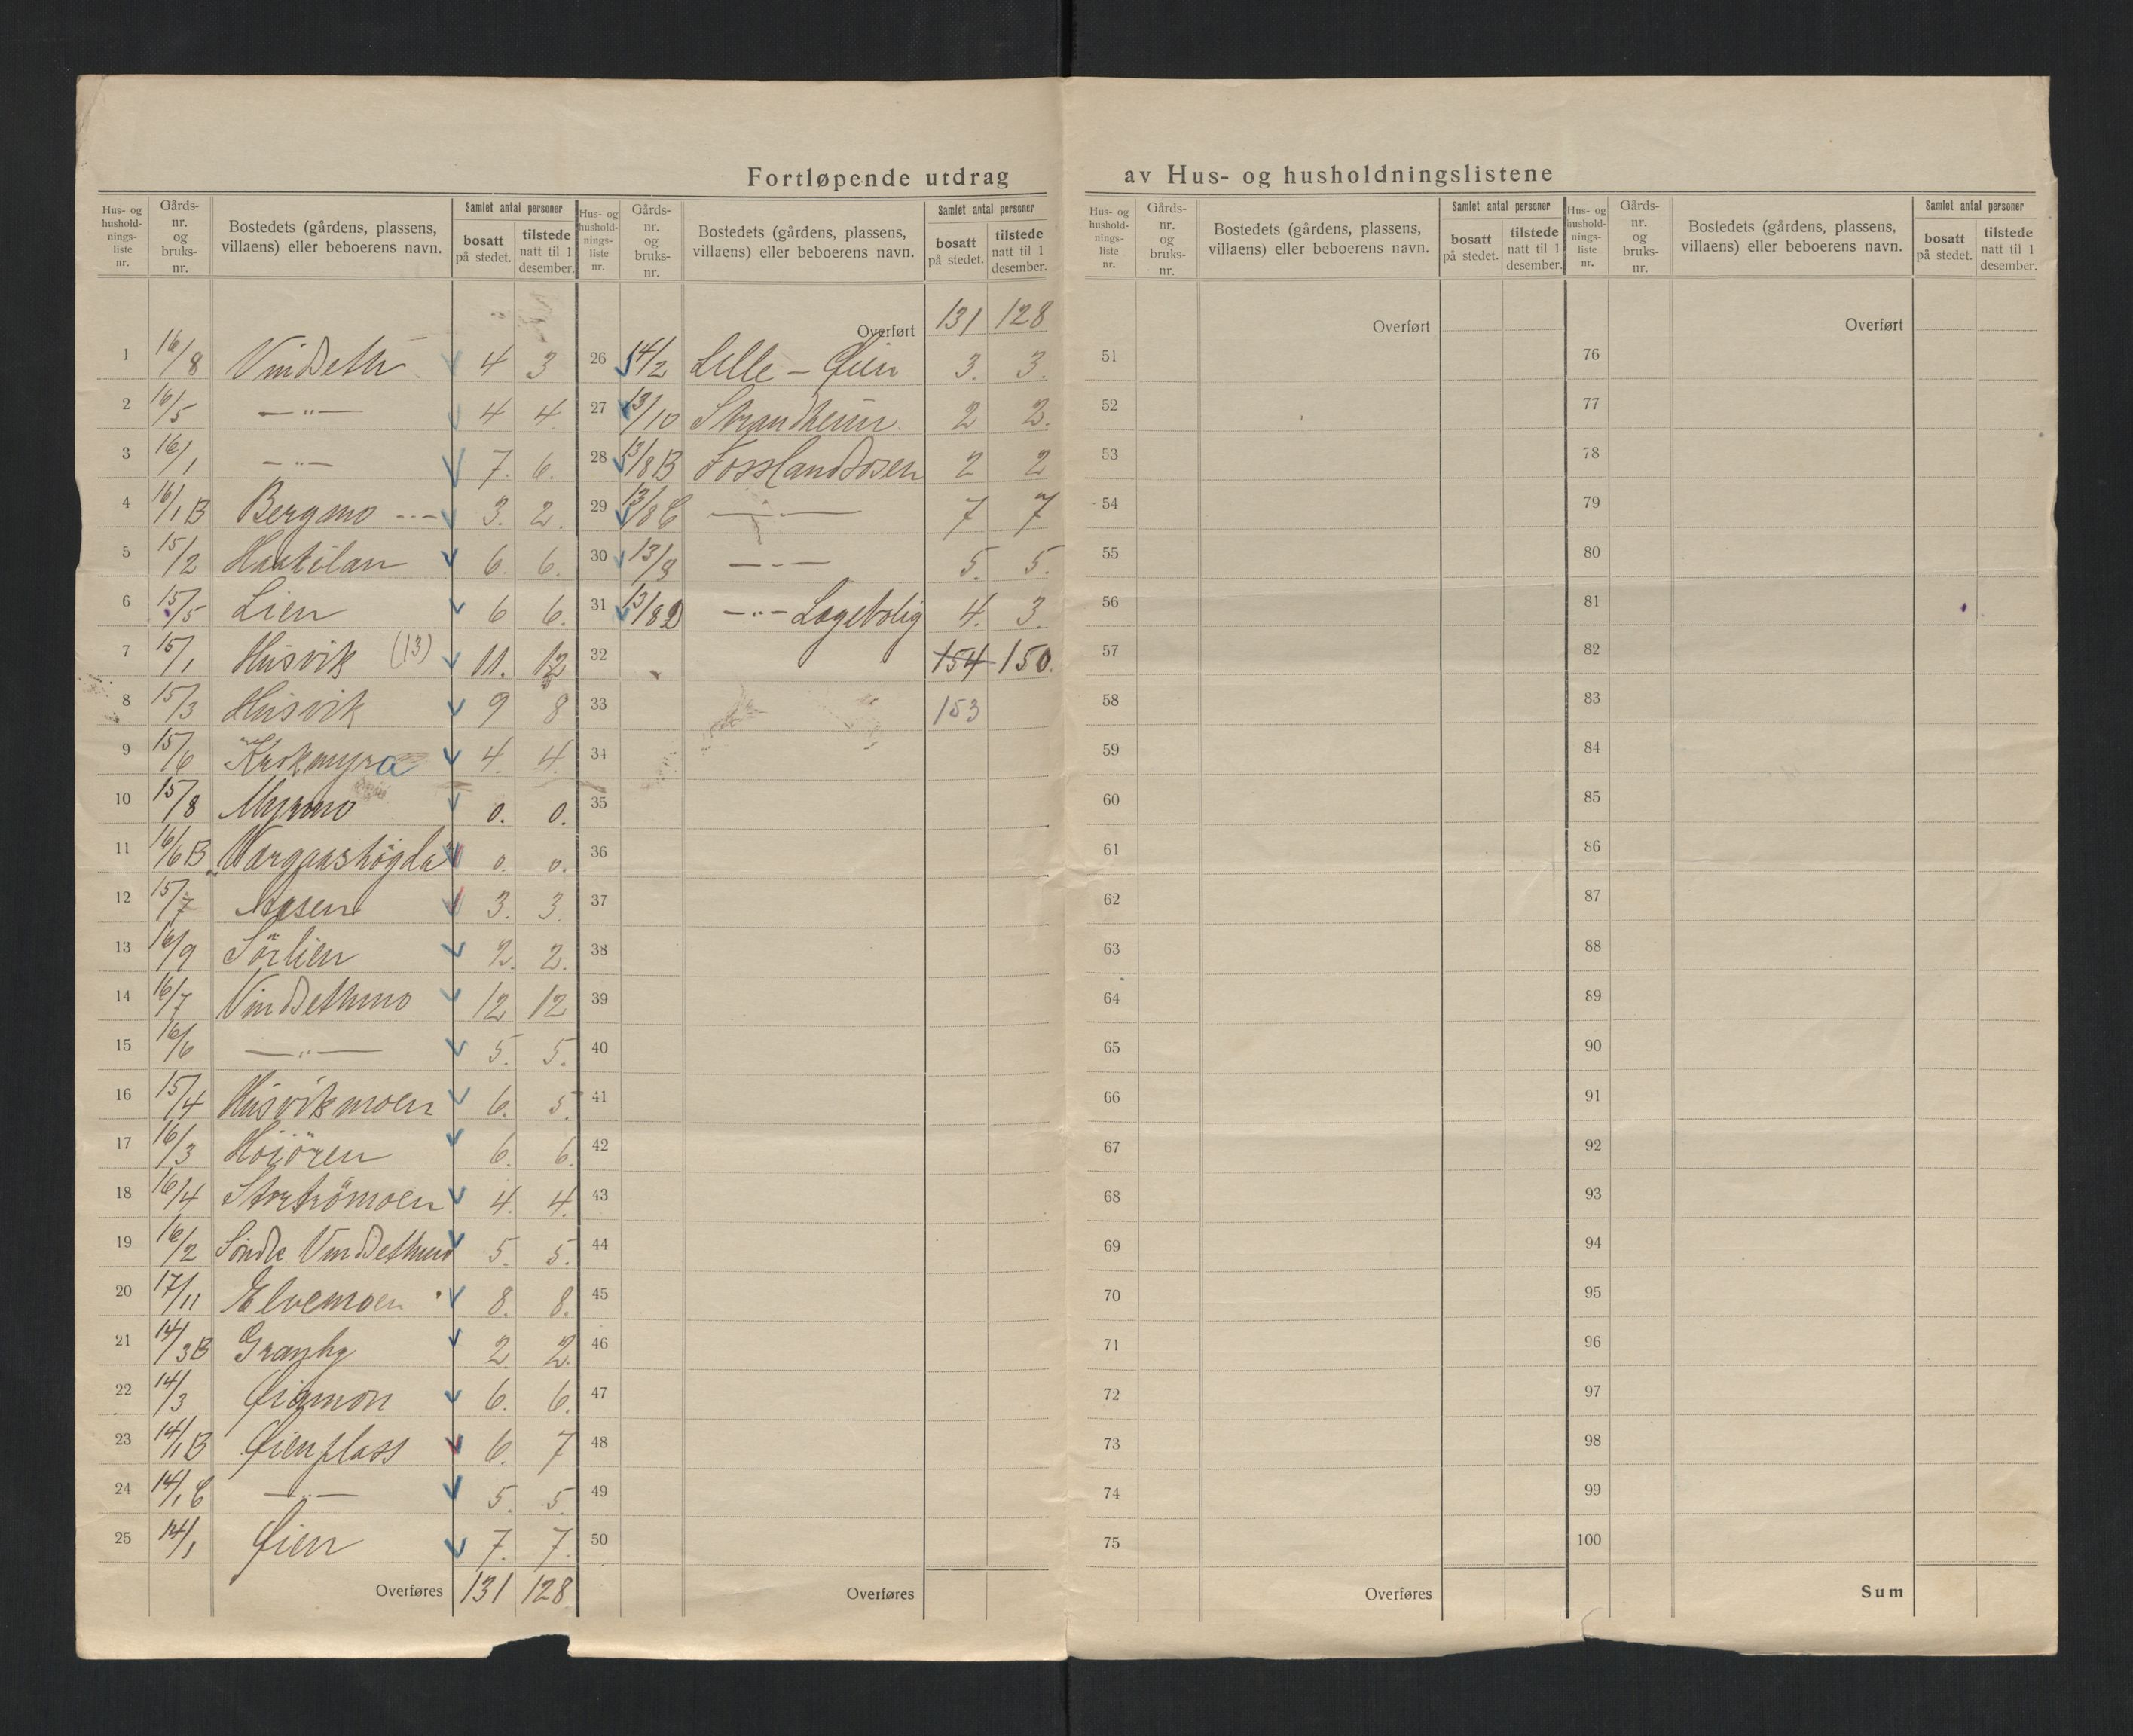 Fortløpende utdrag av Hus- og husholdningslistene
Hus- og hushold-nings-liste nr. Gårds-nr. og bruks-nr. Bostedets (gårdens, plassens, villaens) eller beboerens navn. Samlet antal personer bosatt på stedet. tilstede natt til 1 desember.
1 16/8 Vindseth 4 3
2 16/5 —"— 4 4
3 16/1 —"— 7. 6.
4 16/1 B Bergmo 3. 2.
5 15/2 6. 6.
6 15/5 Lien 6 6.
7 15/1 Husvik (13) 11. 12
8 15/3 Husvik 9 8
9 15/6 4. 4.
10 15/8 Myrmo 0. 0.
11 16/6 B Vargaashögda 0. 0.
12 15/7 Aasen 3. 3.
13 16/9 Sörlien 2. 2.
14 16/7 Vindsethmo 12 12
15 16/6 —"— 5. 5.
16 15/4 Husvikmoen 6. 5.
17 16/3 Höiören 6. 6.
18 16/4 4. 4.
19 16/2 Vindsethmo 5. 5.
20 17/11 Elvemoen 8. 8.
21 14/3 B Granby 2. 2.
22 14/3 Øiamon 6. 6.
23 14/1 B Øienplass 6. 7
24 14/1 C —"— 5. 5.
25 14/1 Øien 7. 7.
Overføres 131 128
Hus- og hushold-nings-liste nr. Gårds-nr. og bruks-nr. Bostedets (gårdens, plassens, villaens) eller beboerens navn. Samlet antal personer bosatt på stedet. tilstede natt til 1 desember.
Overført 131 128
26 14/2 Lille-Øien 3. 3.
27 13/10 Strandheim 2 2.
28 13/8 B Fosslandsosen 2 2
29 13/8 C —"— 7 7
30 13/8 —"— 5. 5.
31 13/8 D —"— Lægebolig 4. 3.
32 154 150.
33 153
34
35
36
37
38
39
40
41
42
43
44
45
46
47
48
49
50
Overføres
Hus- og hushold-nings-liste nr. Gårds-nr. og bruks-nr. Bostedets (gårdens, plassens, villaens) eller beboerens navn. Samlet antal personer bosatt på stedet. tilstede natt til 1 desember.
Overført
51
52
53
54
55
56
57
58
59
60
61
62
63
64
65
66
67
68
69
70
71
72
73
74
75
Overføres
Hus- og hushold-nings-liste nr. Gårds-nr. og bruks-nr. Bostedets (gårdens, plassens, villaens) eller beboerens navn. Samlet antal personer bosatt på stedet. tilstede natt til 1 desember.
Overført
76
77
78
79
80
81
82
83
84
85
86
87
88
89
90
91
92
93
94
95
96
97
98
99
100
Sum